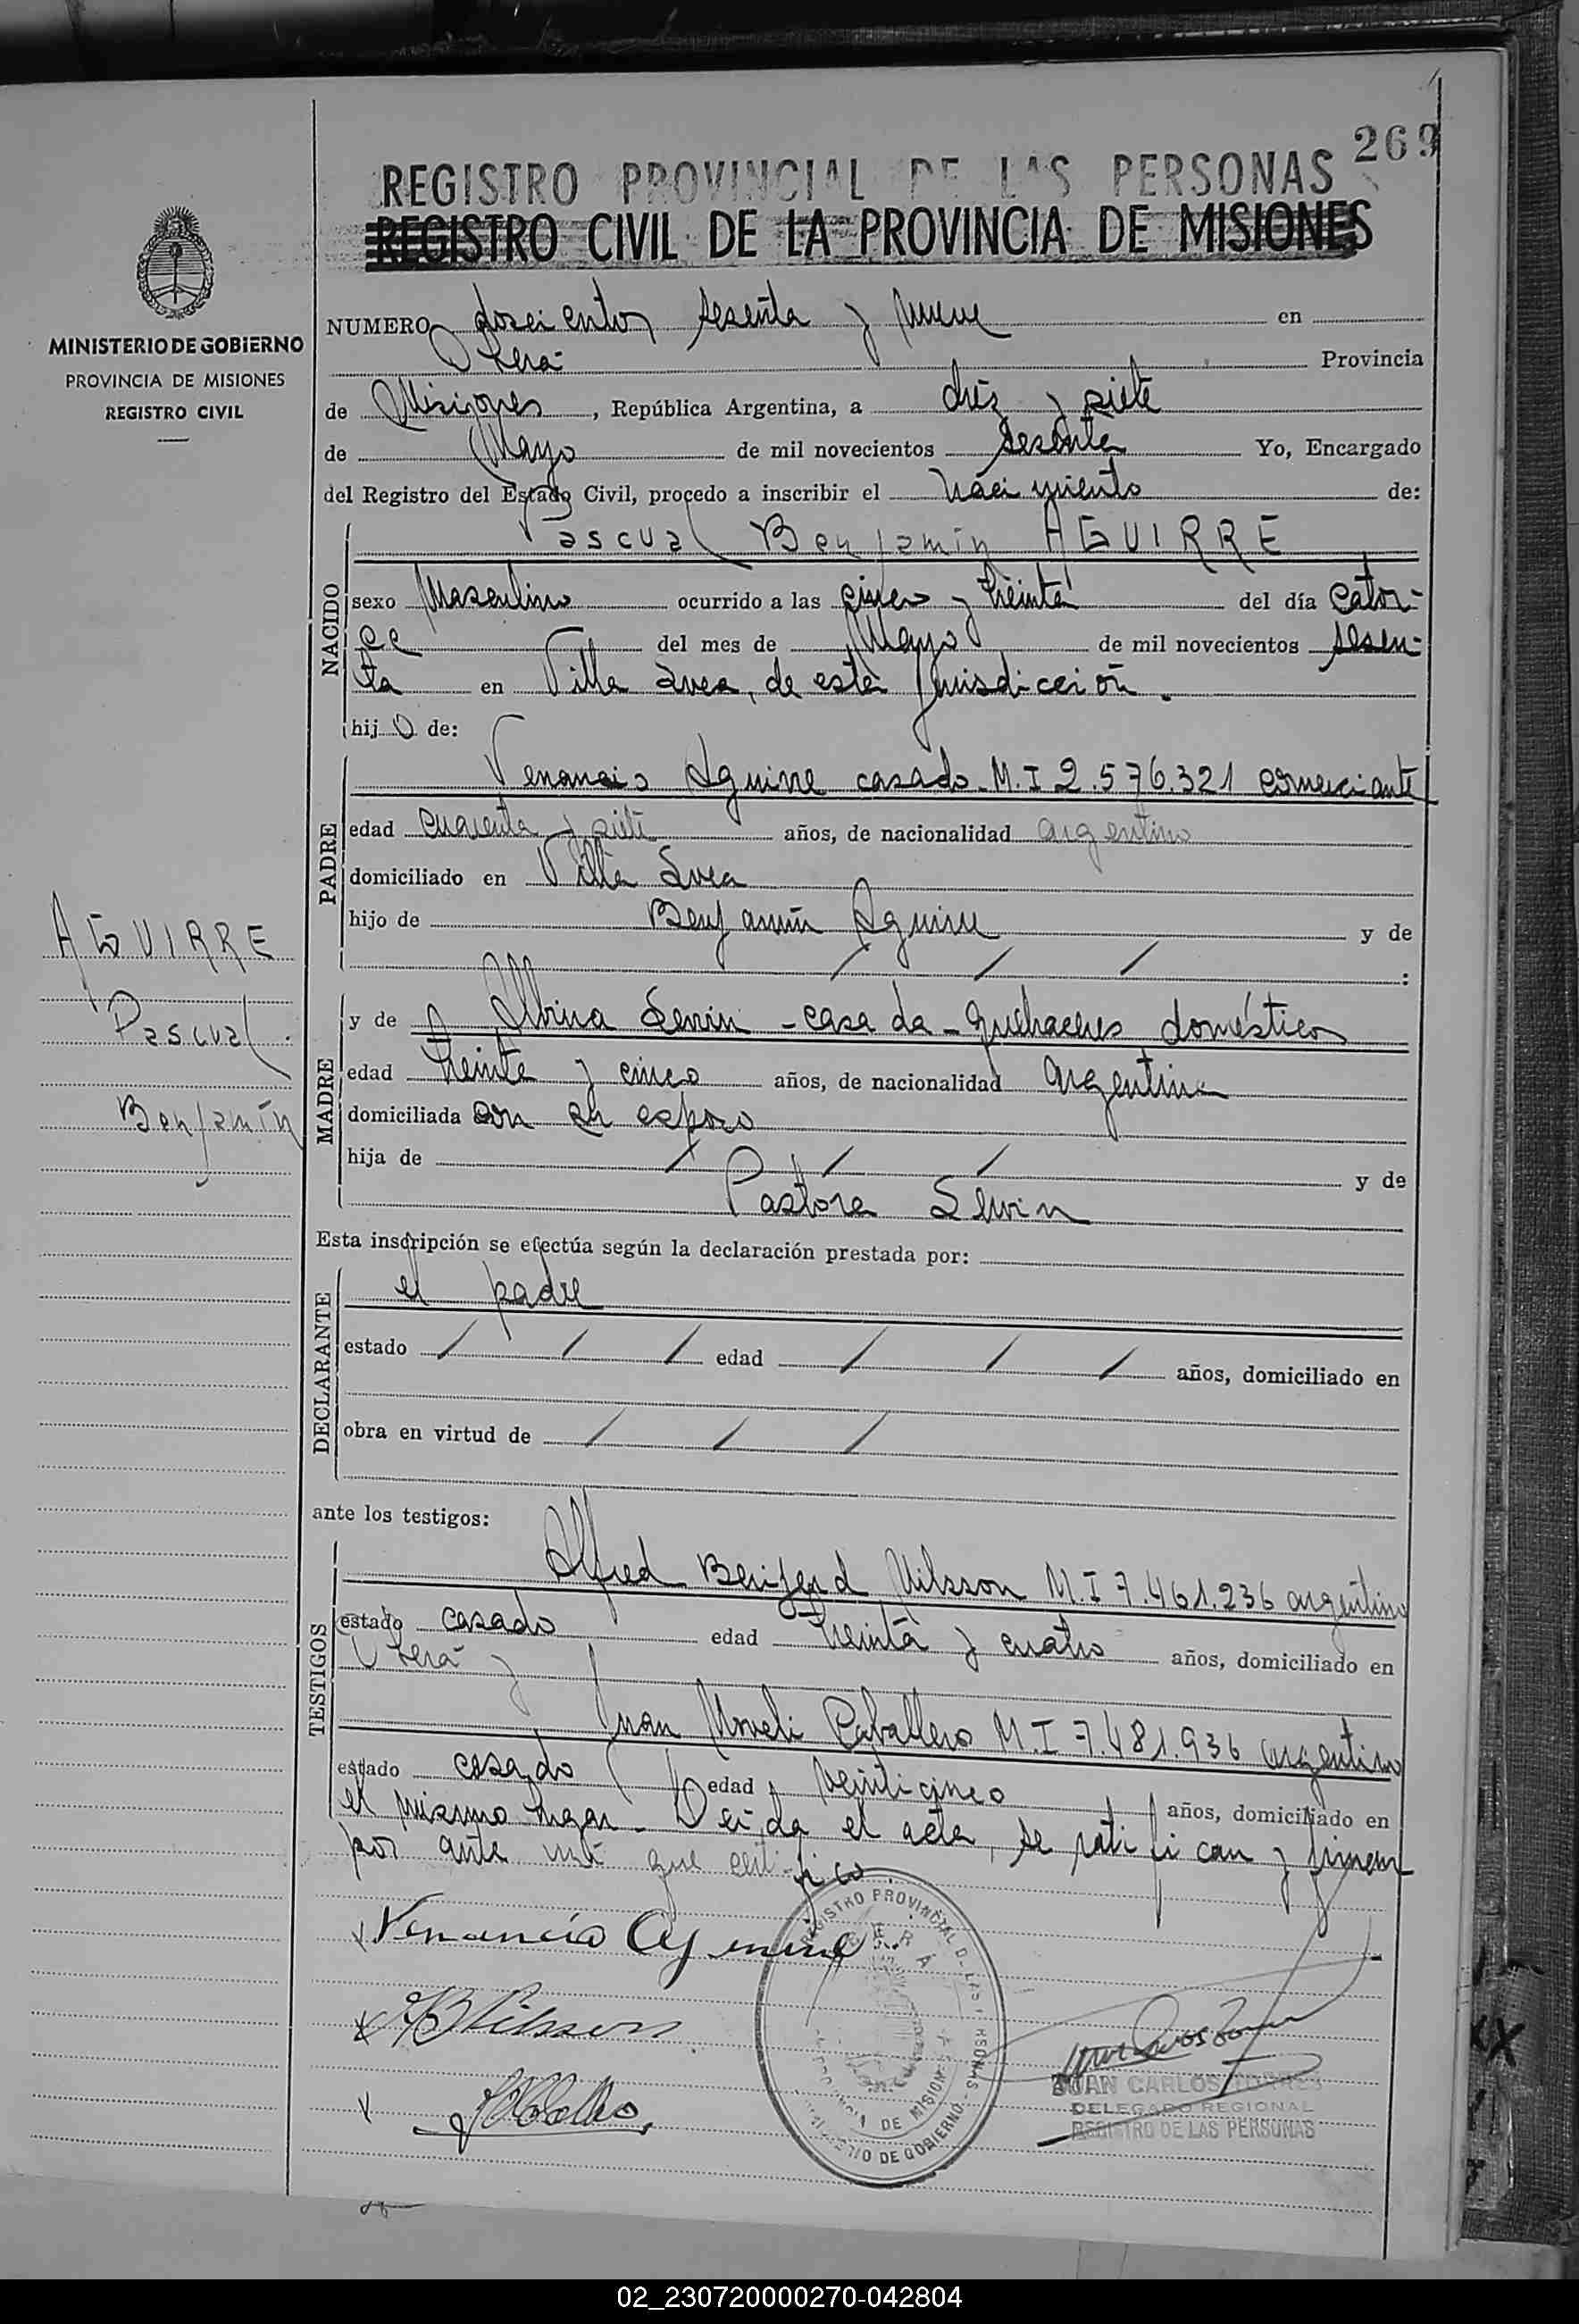 269
REGISTRO PROVINCIAL DE LAS PERSONAS
REGISTRO CIVIL DE LA PROVINCIA DE MISIONES
MINISTERIO DE GOBIERNO
PROVINCIA DE MISIONES
REGISTRO CIVIL
NUMERO doscientos sesenta y nueve en
Oberá Provincia
de Misiones, República Argentina, a diez y siete
de Mayo de mil novecientos sesenta Yo, Encargado
del Registro del Estado Civil, procedo a inscribir el nacimiento de:
Pascual Benjamín AGUIRRE
NACIDO
sexo Masculino ocurrido a las cinco y treinta del día cator-
ce del mes de Mayo de mil novecientos sesen-
ta en Villa Svea, de esta jurisdicción.
hijo de:
PADRE
Venancio Aguirre casado M.I 2.576.321 comerciante
edad cuarenta y siete años, de nacionalidad argentino
domiciliado en Villa Svea
hijo de Benjamín Aguirre y de
/ / / :
AGUIRRE
Pascual
Benjamín
MADRE
y de Albina - casada - quehaceres domésticos
edad treinta y cinco años, de nacionalidad argentina
domiciliada con su esposo
hija de / / / y de
Pastora
Esta inscripción se efectúa según la declaración prestada por:
DECLARANTE
el padre
estado / / / edad / / / años, domiciliado en
obra en virtud de / / /
ante los testigos:
TESTIGOS
Alfred Nilsson M.I 7.461.236 argentino
estado casado edad treinta y cuatro años, domiciliado en
Oberá y
Juan Caballero M.I 7.481.936 argentino
estado casado edad veinticinco años, domiciliado en
el mismo lugar. Leida el acta, se ratifican y firman
por ante mí que certifico.
Venancio Aguirre
REGISTRO PROVINCIAL D LAS PERSONAS
OBERÁ
PROVINCIA DE MISIONES
MINISTERIO DE GOBIERNO
JUAN CARLOS TORRES
DELEGADO REGIONAL
REGISTRO DE LAS PERSONAS
02_230720000270-042804